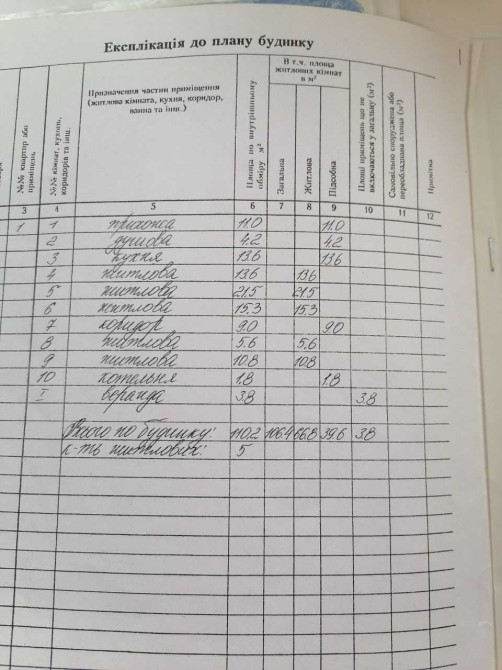 Експлікація до плану будинку
№№ квартир або приміщень,
№№ кімнат, кухонь, коридорів та інш.
Призначення частин приміщення
(житлова кімната, кухня, коридор,
ванна та інш.)
Площа по внутрішньому обміру м²
В т.ч. площа
житлових кімнат
в м²
Загальна
Житлова
Підсобна
Площі приміщень що не включаються у загальну (м²)
Самовільно споруджена або переобладнана площа (м²)
Примітка
3 4 5 6 7 8 9 10 11 12
1 1 прихожа 11.0 11.0
2 душова 4.2 4.2
3 кухня 13.6 13.6
4 житлова 13.6 13.6
5 житлова 21.5 21.5
6 житлова 15.3 15.3
7 коридор 9.0 9.0
8 житлова 5.6 5.6
9 житлова 10.8 10.8
10 котельня 1.8 1.8
I веранда 3.8 3.8
Всього по будинку: 110.2 106.4 66.8 39.6 3.8
к-ть житлових: 5